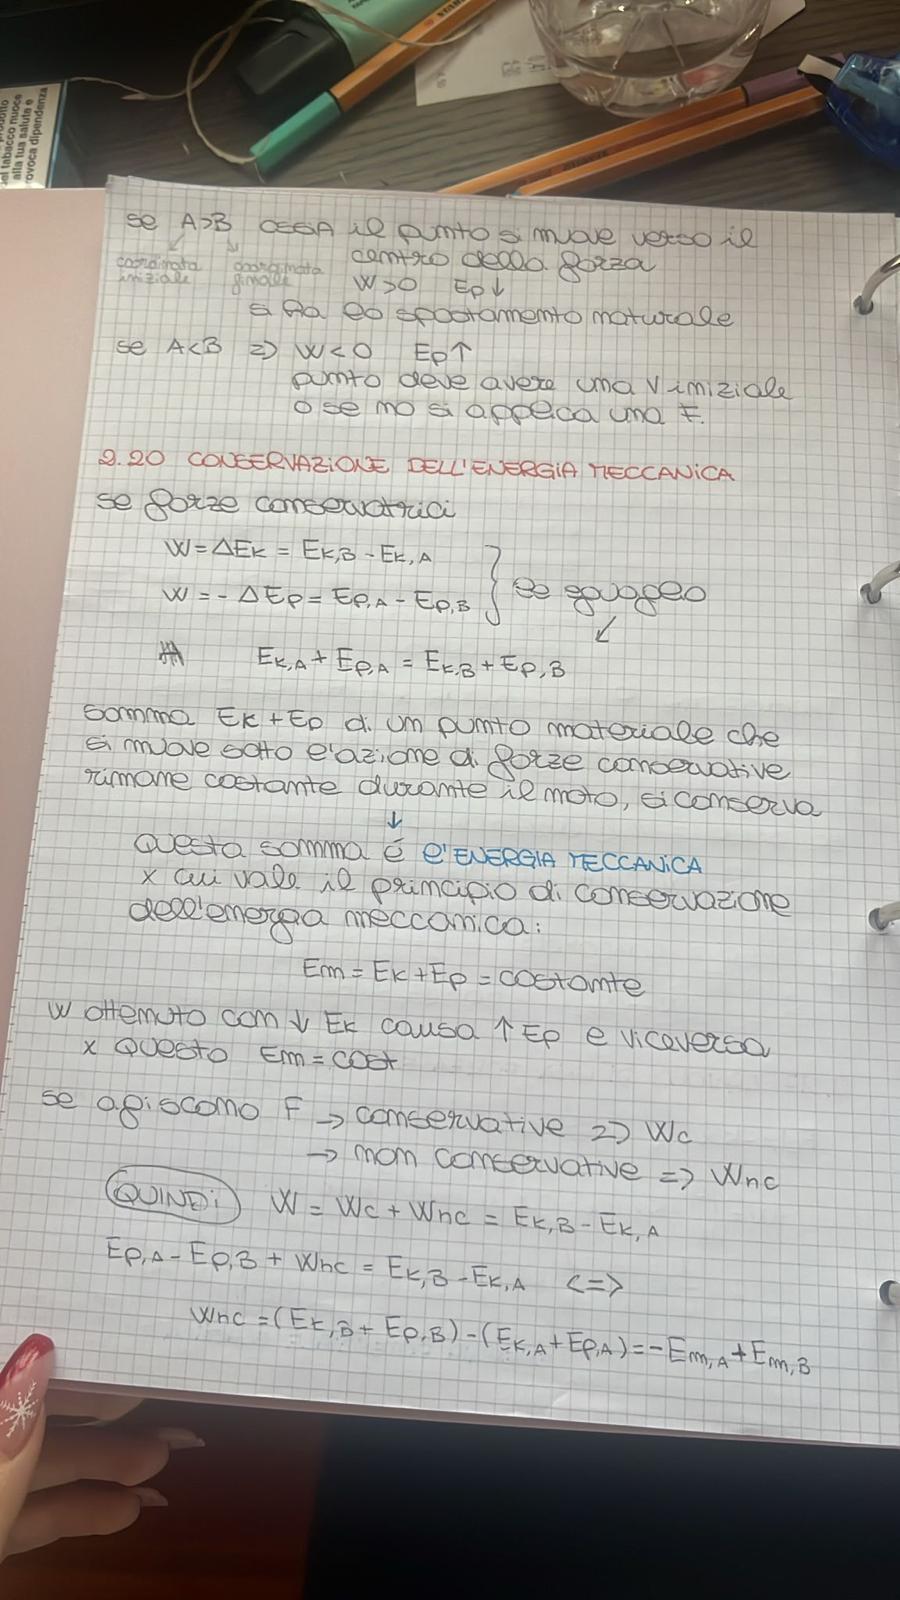 prodotto
del tabacco nuoce
alla tua salute e
provoca dipendenza
se A>B OSSIA il punto si muove verso il
coordinata iniziale
coordinata finale
centro della forza
W>0 Ep↓
si ha lo spostamento naturale
se A<B => W<0 Ep↑
punto deve avere una V iniziale
o se no si applica una F.
2.20 CONSERVAZIONE DELL'ENERGIA MECCANICA
se forze conservatrici
W=ΔEk = Ek,B - Ek,A
W = - ΔEp = Ep,A - Ep,B } se eguaglio
↙
Ek,A + Ep,A = Ek,B + Ep,B
somma Ek+Ep di un punto materiale che
si muove sotto l'azione di forze conservative
rimane costante durante il moto, si conserva
↓
questa somma é l'ENERGIA MECCANICA
x cui vale il principio di conservazione
dell'energia meccanica:
Em = Ek + Ep = costante
W ottenuto con ↓ Ek causa ↑ Ep e viceversa
x questo Em = cost
se agiscono F → conservative => Wc
→ non conservative => Wnc
QUINDI W = Wc + Wnc = Ek,B - Ek,A
Ep,A - Ep,B + Wnc = Ek,B - Ek,A <=>
Wnc = (Ek,B + Ep,B) - (Ek,A + Ep,A) = -Em,A + Em,B